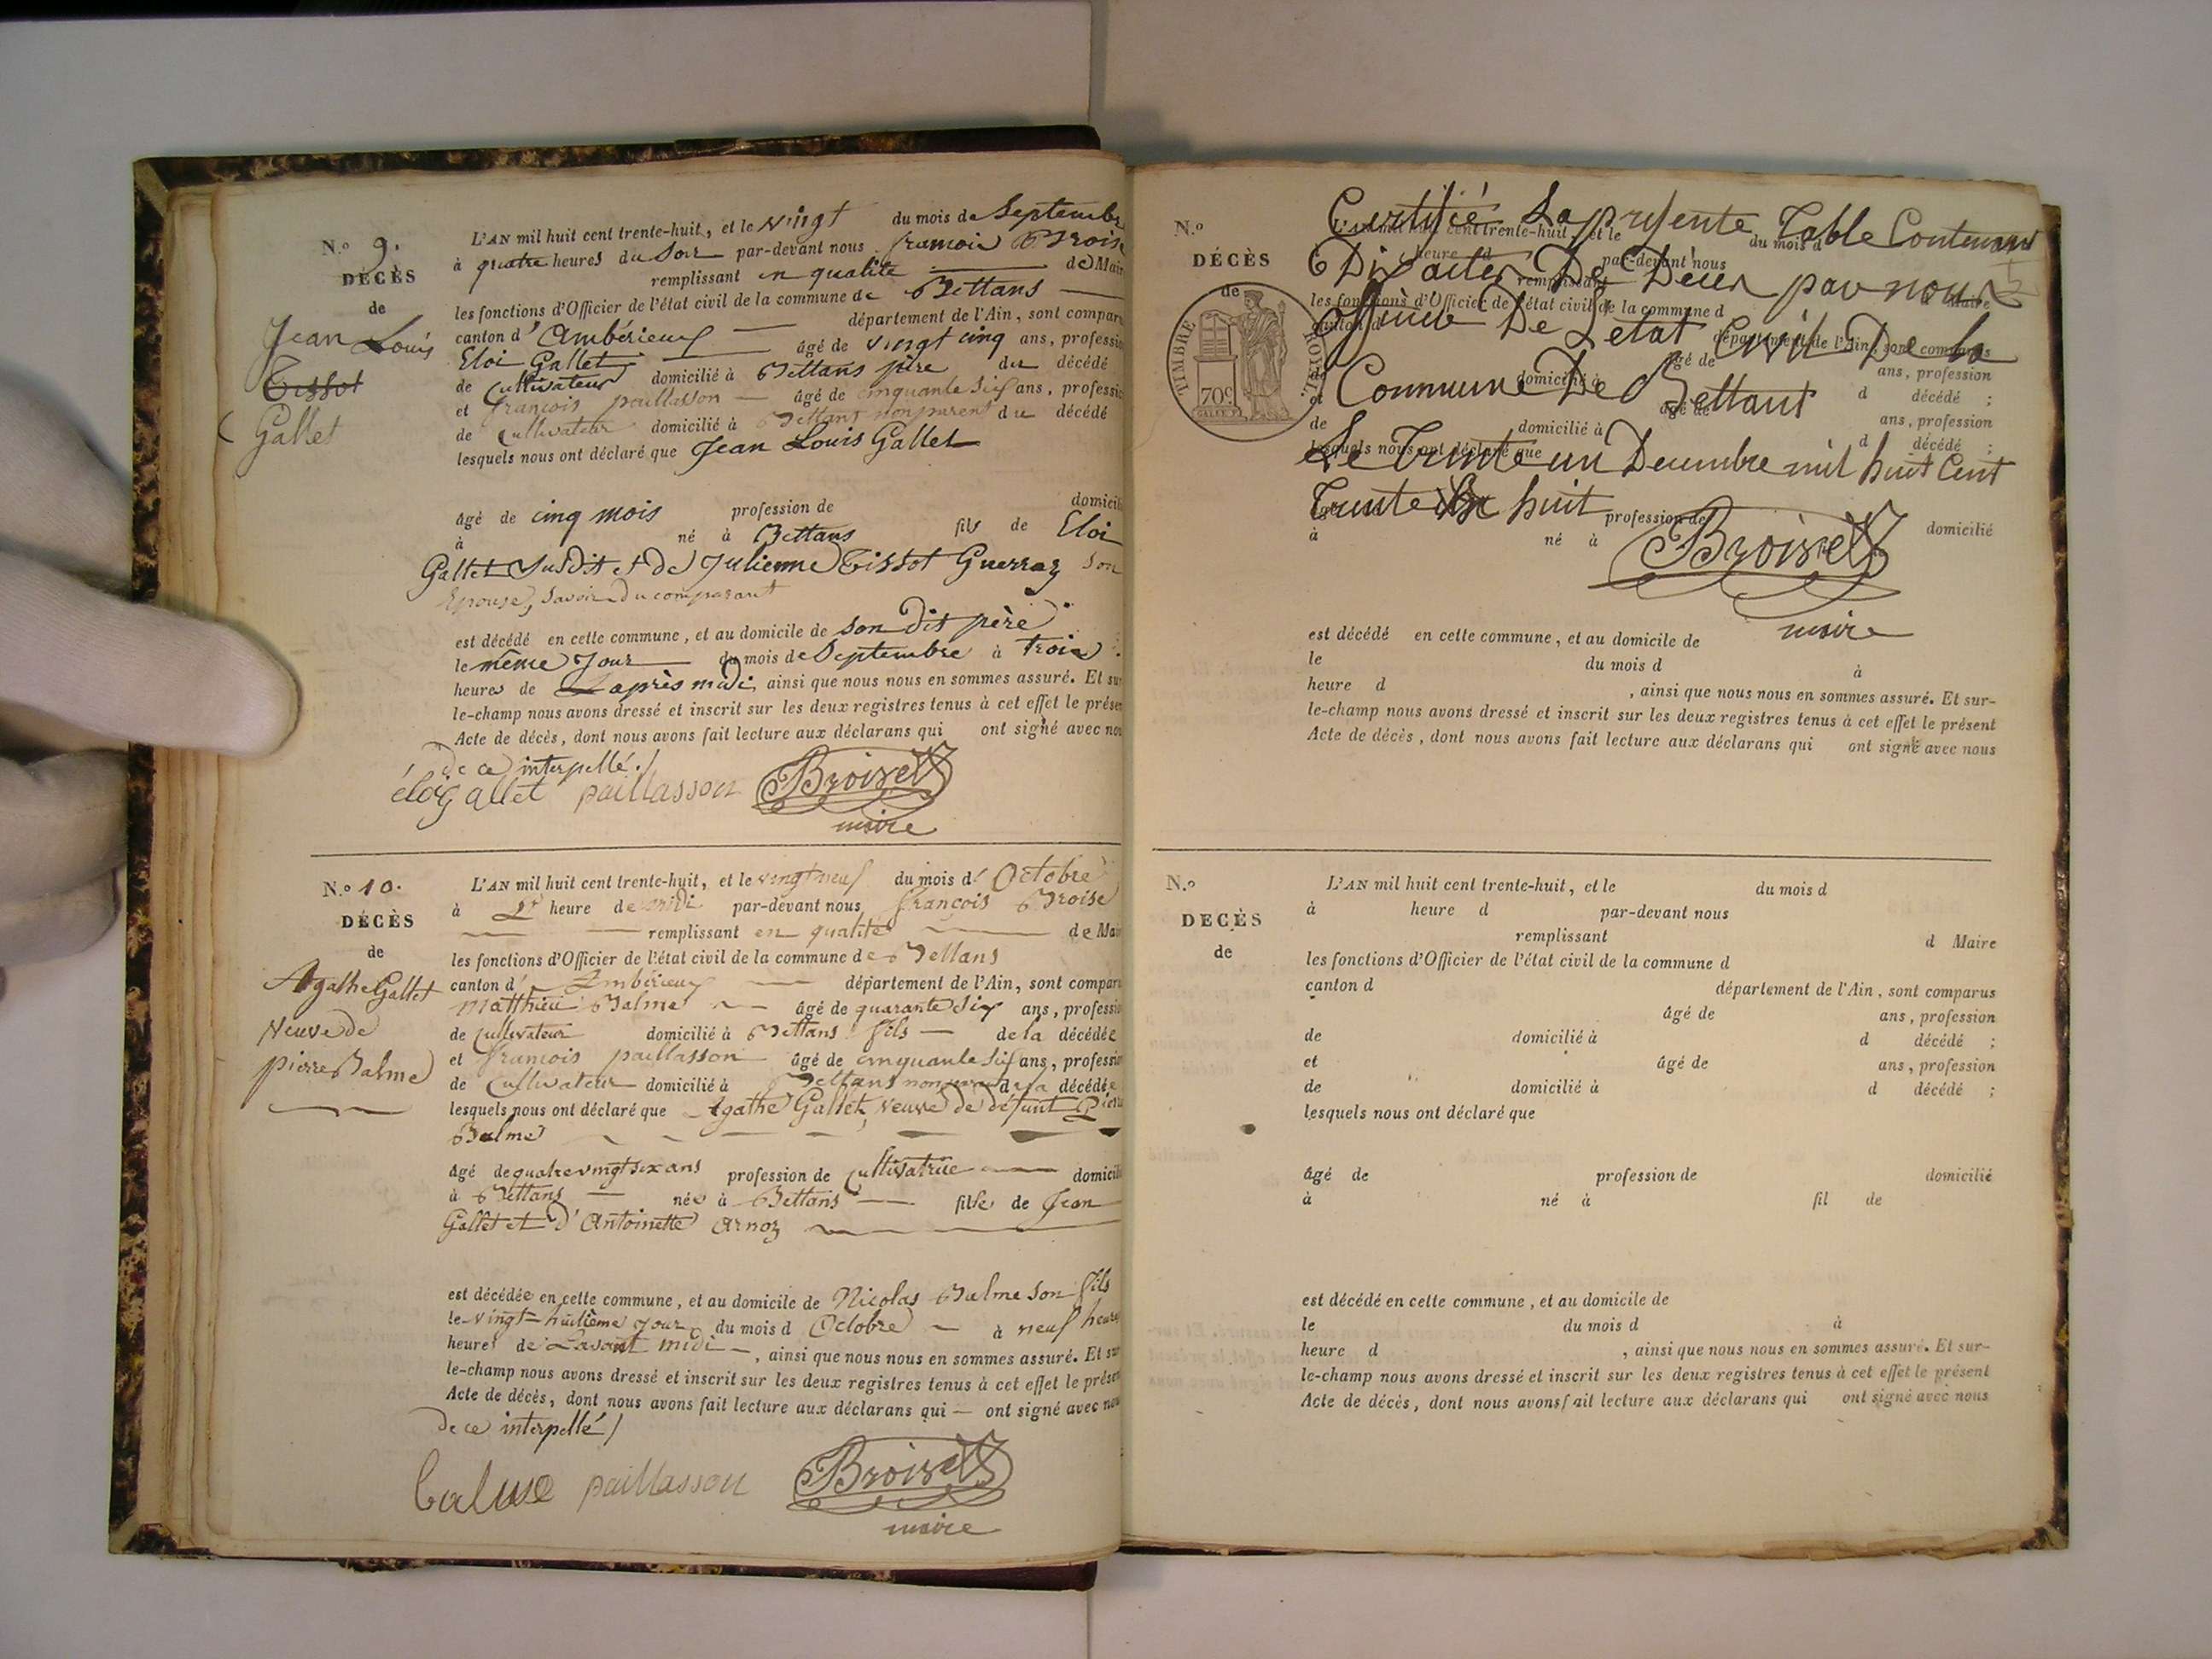 N.o 9.
DÉCÈS
de
Jean Louis
Tissot
Gallet
L'AN mil huit cent trente-huit, et le vingt du mois de Septembre
à quatre heures du Soir par-devant nous francois Broise
remplissant en qualité de Mair
les fonctions d'Officier de l'état civil de la commune de Bettans
canton d'Ambérieux département de l'Ain, sont compar
Eloi Gallet âgé de vingt cinq ans, professio
de Cultivateur domicilié à Bettans père du décédé
et françois paillasson âgé de cinquante Six ans, professio
de Cultivateur domicilié à Bettans non parent du décédé
lesquels nous ont déclaré que Jean Louis Gallet
âgé de cinq mois profession de domicili
à né à Bettans fils de Eloi
Gallet Susdit et de Julienne Tissot Guerraz Son
Epouse, Savoir du comparant
est décédé en cette commune, et au domicile de Son dit père
le même Jour du mois de Septembre à trois
heures de L'après midi, ainsi que nous nous en sommes assuré. Et sur
le-champ nous avons dressé et inscrit sur les deux registres tenus à cet effet le présen
Acte de décès, dont nous avons fait lecture aux déclarans qui ont signé avec nou
de ce interpellé./
éloi gallet paillasson Broise
maire
N.o 10.
DÉCÈS
de
Agathe Gallet
Veuve de
pierre Balme
L'AN mil huit cent trente-huit, et le vingt neuf du mois d'Octobre
à heure de midi par-devant nous françois Broise
remplissant en qualité de Mai
les fonctions d'Officier de l'état civil de la commune de Bettans
canton d'Ambérieux département de l'Ain, sont compar
Matthieu Balme âgé de quarante Six ans, professio
de Cultivateur domicilié à Bettans fils de la décédée
et francois paillasson âgé de cinquante Six ans, professio
de Cultivateur domicilié à Bettans non parent de la décédée
lesquels nous ont déclaré que Agathe Gallet, Veuve de défunt Pierre
Balme
âgé de quatre vingt six ans profession de cultivatrice domicili
à Bettans née à Bettans fille de Jean
Gallet et d'Antoinette Arnoz
est décédée en cette commune, et au domicile de Nicolas Balme Son fils
le vingt-huitième Jour du mois d Octobre à neuf heures
heures de Lavant midi, ainsi que nous nous en sommes assuré. Et sur
le-champ nous avons dressé et inscrit sur les deux registres tenus à cet effet le présen
Acte de décès, dont nous avons fait lecture aux déclarans qui ont signé avec nou
de ce interpellé/
balme paillasson Broise
maire
N.o
DÉCÈS
de
TIMBRE ROYAL
70c.
Certifié La présente Table Contenant
Dix actes De Décès par nous
officier De Létat Civil De la
Commune De Bettant
Le Trente un Decembre mil huit Cent
Trente huit
Broise
maire
L'AN mil huit cent trente-huit, et le du mois d
heure d par-devant nous
remplissant Maire
les fonctions d'Officier de l'état civil de la commune d
canton d département de l'Ain, sont comparus
âgé de ans, profession
domicilié à d décédé ;
et âgé de ans, profession
de domicilié à d décédé ;
lesquels nous ont déclaré que
profession de domicilié
à né à
est décédé en cette commune, et au domicile de
le du mois d à
heure d , ainsi que nous nous en sommes assuré. Et sur-
le-champ nous avons dressé et inscrit sur les deux registres tenus à cet effet le présent
Acte de décès, dont nous avons fait lecture aux déclarans qui ont signé avec nous
N.o
DECÈS
de
L'AN mil huit cent trente-huit, et le du mois d
à heure d par-devant nous
remplissant d Maire
les fonctions d'Officier de l'état civil de la commune d
canton d département de l'Ain, sont comparus
âgé de ans, profession
de domicilié à d décédé ;
et âgé de ans, profession
de domicilié à d décédé ;
lesquels nous ont déclaré que
âgé de profession de domicilié
à né à fil de
est décédé en cette commune, et au domicile de
le du mois d à
heure d , ainsi que nous nous en sommes assuré. Et sur-
le-champ nous avons dressé et inscrit sur les deux registres tenus à cet effet le présent
Acte de décès, dont nous avons fait lecture aux déclarans qui ont signé avec nous